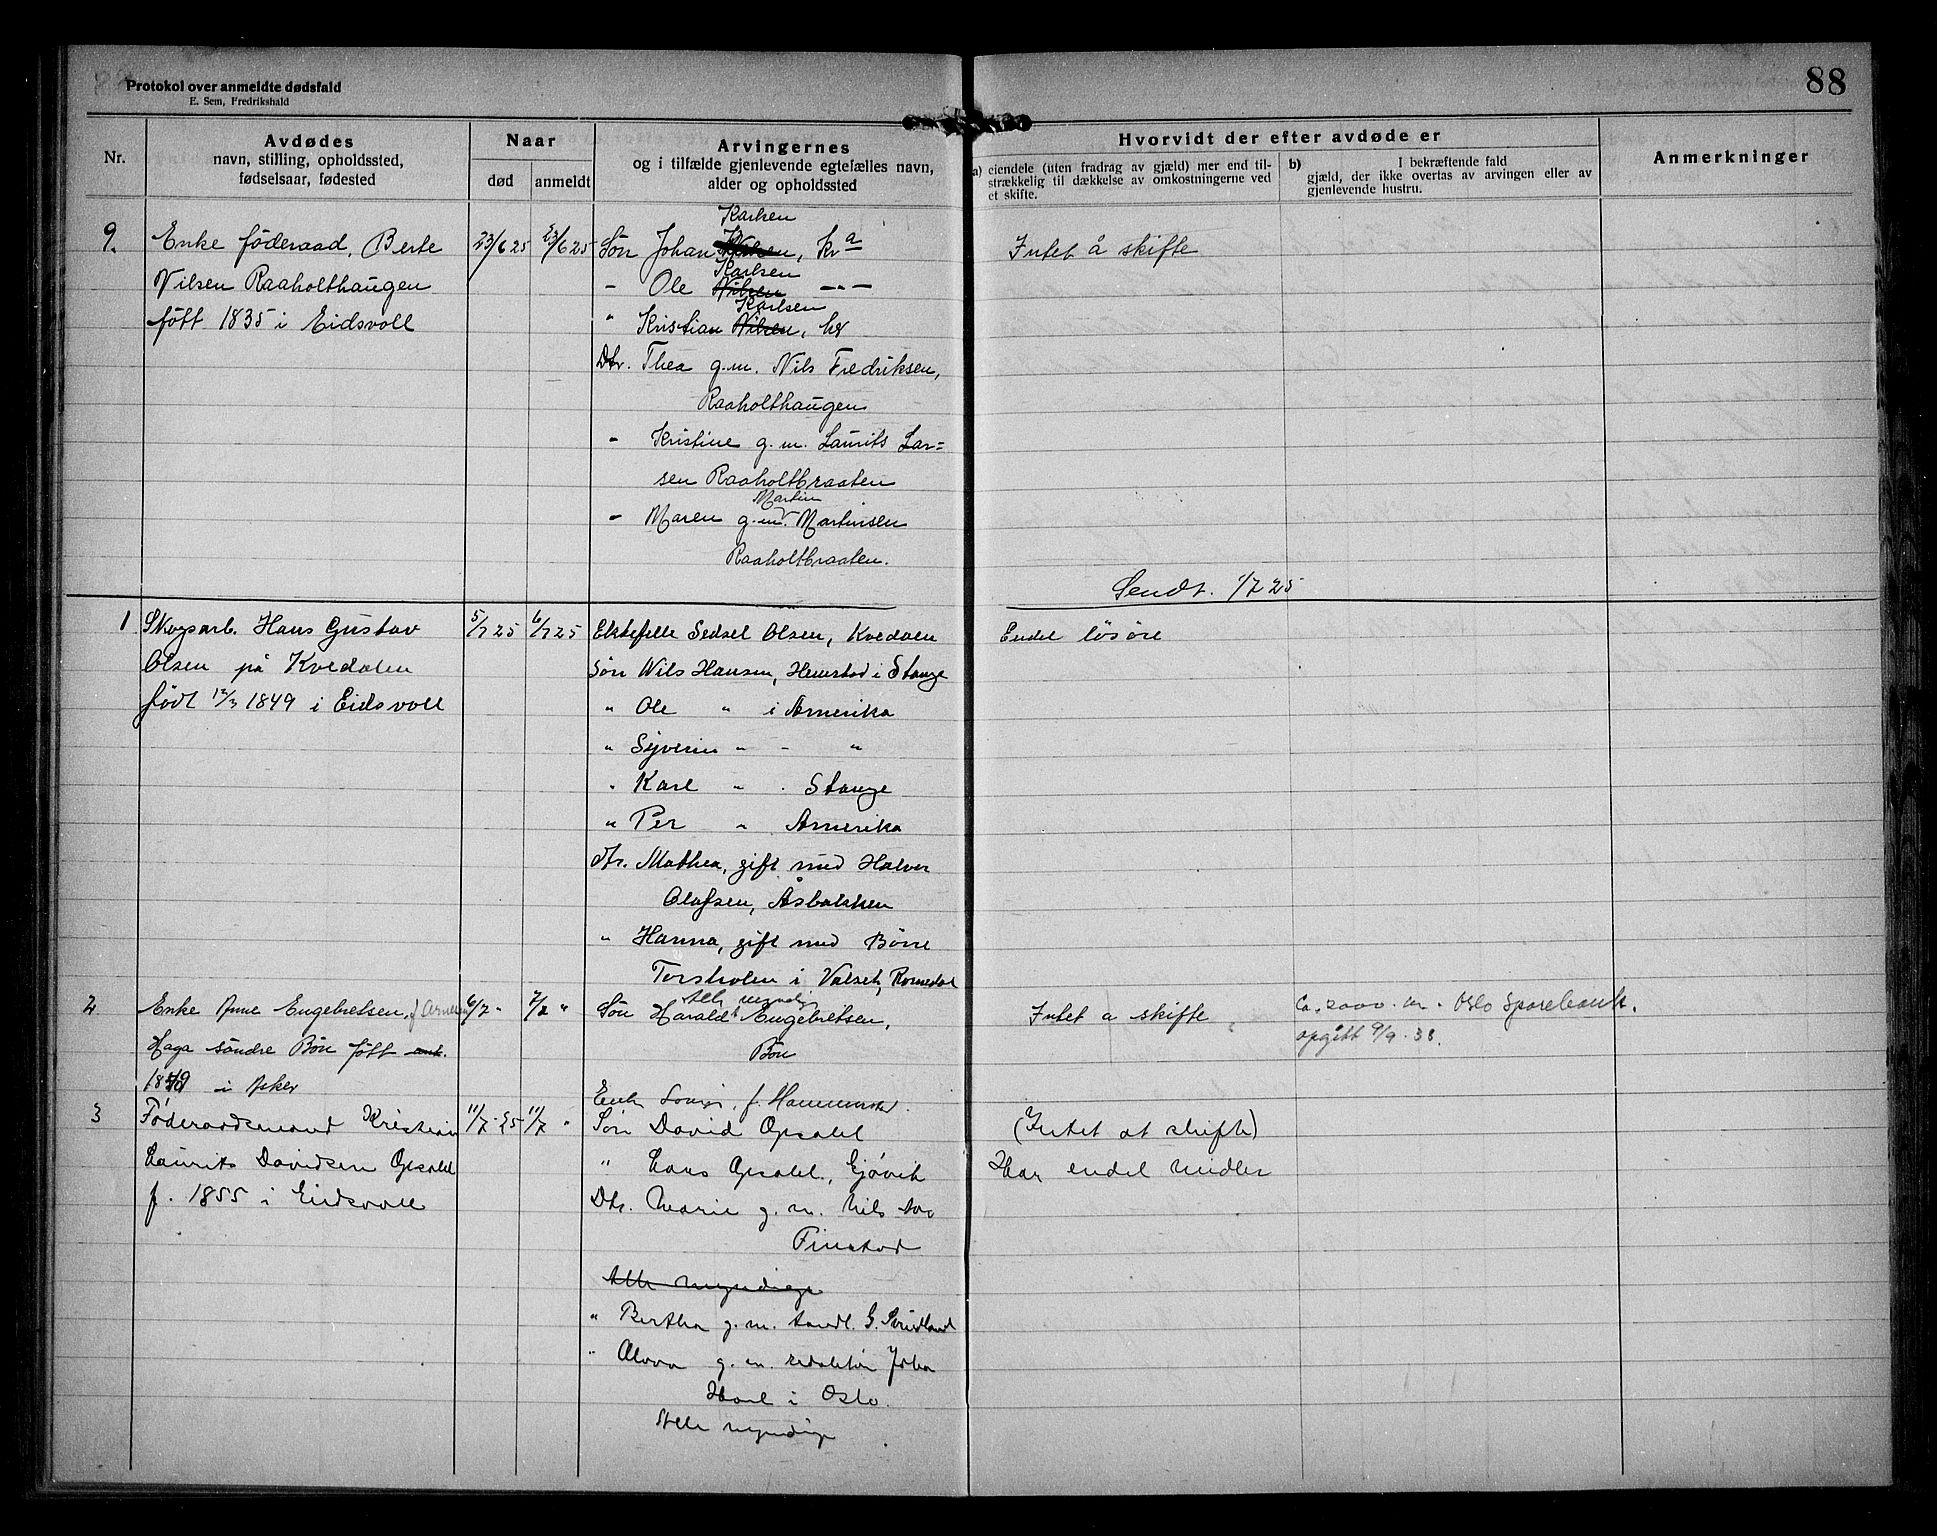 88
Protokol over anmeldte dødsfald
E. Sem, Fredrikshald
Nr.
Avdødes
navn, stilling, opholdssted,
fødselsaar, fødested
Naar
død
anmeldt
Arvingernes
og i tilfælde gjenlevende egtefælles navn,
alder og opholdssted
Hvorvidt der efter avdøde er
a) eiendele (uten fradrag av gjæld) mer end til-
strækkelig til dækkelse av omkostningerne ved
et skifte.
b) I bekræftende fald
gjæld, der ikke overtas av arvingen eller av
gjenlevende hustru.
Anmerkninger
9. Enke føderaad, Berte
Nilsen Raaholthaugen
født 1835 i Eidsvoll
23/6 25
23/6 25
Karlsen
Søn Johan Nilsen, Kra
Karlsen
- Ole Nilsen -"-
Karlsen
" Kristian Nilsen, her
Dtr. Thea g.m. Nils Fredriksen,
Raaholthaugen
- Kristine g.m. Laurits Lar=
sen Raaholtbraaten
Martin
- Maren g.m. Martinsen
Raaholtbraaten.
Intet å skifte
Sendt. 1/7 25
1 Skogsarb. Hans Gustav
Olsen på Kvedalen
født 12/3 1849 i Eidsvoll
5/7 25
6/7 25
Ektefelle Sedsel Olsen, Kvedalen
Søn Nils Hansen, Hemstad i Stange
" Ole " i Amerika
" Syverin " - "
" Karl " . Stange
" Per " Amerika
Dtr. Mathea, gift med Halvor
Olafsen, Åsbakken
" Hanna, gift med Børre
Torsholen i Valset, Romedal
Endel løsøre
2 Enke Anne Engebretsen, f Arnesen
Haga søndre Bøn født
1849 i Asker
6/7 "
7/7 "
Alle myndig
Søn Harald Engebretsen,
Bøn
Intet a skifte
Ca. 2000 . m . Oslo Sparebank.
opgitt 9/9 . 38.
3 Føderaadsmand Kristian
Laurits Davidsen Opsahl
f. 1855 i Eidsvoll
11/7 - 25
11/7 "
Enke Lovise, f. Hammerstad.
Søn David Opsahl
" Lars Opsahl, Gjøvik
Dtr. Marie g. m. Nils Aas
Finstad
Alle myndige
" Bertha g. m. tandl. G.
" g. m. redaktør Johan
i Oslo.
Alle myndige
(Intet at skifte)
Har endel midler